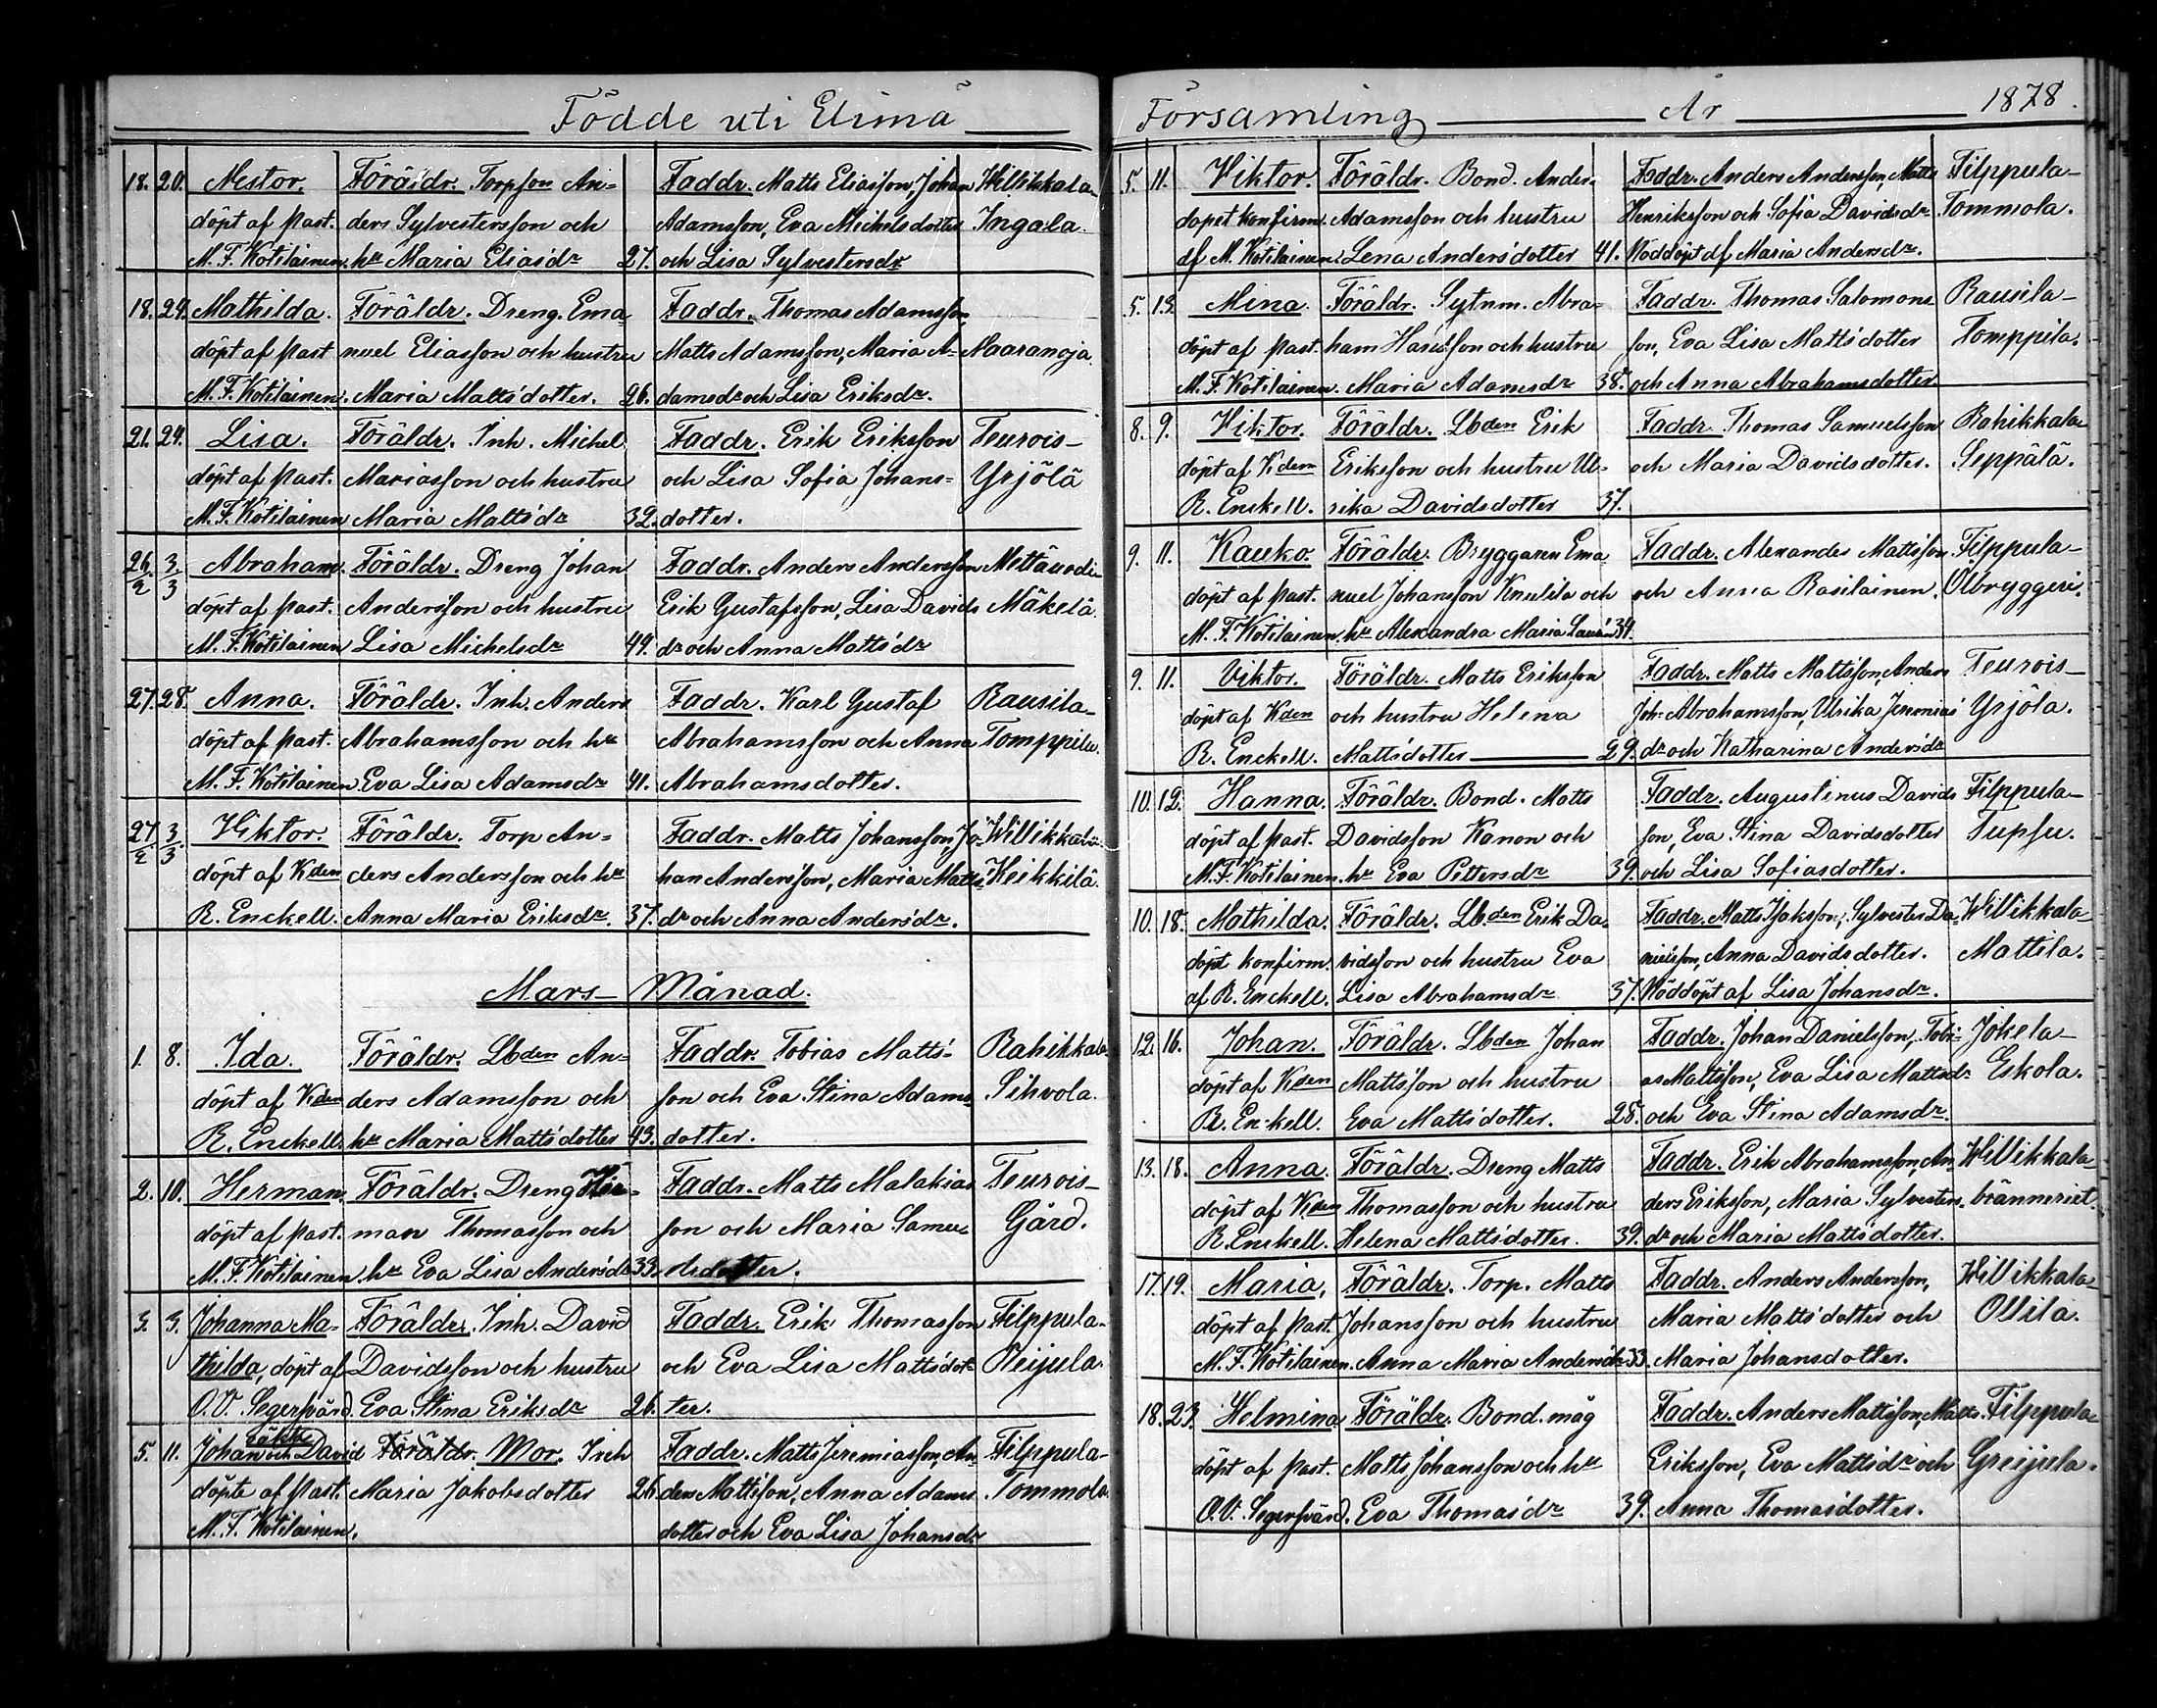 Födde uti Elimä
18. 20. Nestor. Föräldr. Torpson An- Faddr. Matts Eliasson, Johan Willikkala-
döpt af Past. ders Sylvestersson och Adamsson, Eva Michelsdotter Ingala.
M. F. Kotilainen. hu Maria Eliasdr 27. och Lisa Sylvestersdr
18. 24. Mathilda. Föräldr. Dreng. Ema- Faddr. Thomas Adamsson,
döpt af Past nuel Eliasson och hustru Matts Adamsson, Maria A- Naaranoja
M. F. Kotilainen. Maria Mattsdotter. 26. damsdr och Lisa Eriksdr.
21. 24. Lisa. Föräldr. Inh. Michel Faddr. Erik Eriksson Teurois-
döpt af Past. Mariasson och hustru och Lisa Sofia Johans- Yrjölä
M. F. Kotilainen Maria Mattsdr 32. dotter.
26/2 3/3 Abraham. Föräldr. Dreng Johan Faddr. Anders Andersson
döpt af Past. Andersson och hustru Erik Gustafsson, Lisa Davids Mäkelä.
M. F. Kotilainen Lisa Michelsdr 49. dr och Anna Mattsdr
27. 28. Anna. Föräldr. Inh. Anders Faddr. Karl Gustaf Rausila-
döpt af Past. Abrahamsson och hu Abrahamsson och Anna Tomppila.
M. F. Kotilainen Eva Lisa Adamsdr 41. Abrahamsdotter.
27/2 3/3 Viktor. Föräldr. Torp An- Faddr. Matts Johansson, Jo- Willikkala-
döpt af Kden ders Andersson och hu han Andersson, Maria Matts Heikkilä.
R. Enckell. Anna Maria Eriksdr. 37. dr och Anna Andersdr.
Mars- Månad.
1. 8. Ida. Föräldr. Lbden An- Faddr. Tobias Matts- Rahikkala-
döpt af Kden ders Adamsson och son och Eva Stina Adams- Sihvola.
R. Enckell. hu Maria Mattsdotter 43. dotter.
2. 10. Herman. Föräldr. Dreng Her- Faddr. Matts Malakias Teurois-
döpt af Past. man Thomasson och son och Maria Samu- Gård.
M. F. Kotilainen. hu Eva Lisa Andersdr 33. elsdotter.
3. 3. Johanna Ma- Föräldr. Inh. David Faddr. Erik Thomasson Filppula-
thilda, döpt af Davidsson och hustru och Eva Lisa Mattsdot- Reijula.
O. V. Segersvärd. Eva Stina Eriksdr 26. ter.
5. 11. Johan och David oäkta Föräldr. Mor. Inh Faddr. Matts Jeremiasson, An- Filppula-
döpte af Past. Maria Jakobsdotter 26. ders Mattsson, Anna Adams Tommola.
M. F. Kotilainen. dotter och Eva Lisa Johansdr
Församling År 1878.
5. 11. Viktor. Föräldr. Bond. Anders Faddr. Anders Andersson, Matts Filppula-
döpet konfirm. Adamsson och hustru Henriksson och Sofia Davidsdr Tommola.
af M. Kotilainen. Lena Andersdotter 41. Nöddöpt af Maria Andersdr.
5. 13. Mina. Föräldr. Sytnm. Abra- Faddr. Thomas Salomons Rausila-
döpt af Past. ham och hustru son, Eva Lisa Mattsdotter Tomppila.
M. F. Kotilainen. Maria Adamsdr 38. och Anna Abrahamsdotter.
8. 9. Viktor. Föräldr. Lbden Erik Faddr. Thomas Samuelsson Rahikkala
döpt af Kden Eriksson och hustru Ul- och Maria Davidsdotter. Seppälä.
R. Enckell. rika Davidsdotter 37.
9. 11. Kauko. Föräldr. Bryggaren Ema Faddr. Alexander Mattsson Filppula-
döpt af Past. nuel Johansson och och Anna Rasilainen. Ölbryggeri.
M. F. Kotilainen. hu Alexandra Maria 34.
9. 11. Viktor. Föräldr. Matts Eriksson Faddr. Matts Mattsson, Anders Teurois-
döpt af Kden och hustru Helena Joh. Abrahamsson, Ulrika Jeremias Yrjöla.
R. Enckell. Mattsdotter 29. dr och Katharina Andersdr
10. 12. Hanna. Föräldr. Bond. Matts Faddr. Augustinus Davids Filppula-
döpt af Past. Davidsson Kanon och son, Eva Stina Davidsdotter Tupsu.
M. F. Kotilainen. hu Eva Pettersdr 39. och Lisa Sofiasdotter.
10. 18. Mathilda. Föräldr. Lbden Erik Da- Faddr. Matts Isaksson, Sylvester Da- Willikkala-
döpt konfirm. vidsson och hustru Eva nielsson, Anna Davidsdotter. Mattila.
af R. Enckell. Lisa Abrahamsdr 37. Nöddöpt af Lisa Johansdr.
12. 16. Johan. Föräldr. Lbden Johan Faddr. Johan Danielsson, Tobi- Jokela-
döpt af Kden Mattsson och hustru as Mattsson, Eva Lisa Mattsdr Eskola.
R. Enckell. Eva Mattsdotter. 28. och Eva Stina Adamsdr.
13. 18. Anna. Föräldr. Dreng Matts Faddr. Erik Abrahamsson, An- Willikkala-
döpt af Kden Thomasson och hustru ders Eriksson, Maria Sylvesters- bränneriet.
R. Enckell. Helena Mattsdotter. 39. dr och Maria Mattsdotter.
17. 19. Maria. Föräldr. Torp. Matts Faddr. Anders Andersson, Willikkala-
döpt af Past. Johansson och hustru Maria Mattsdotter och Ollila.
M. F. Kotilainen. Anna Maria Andersdr 33. Maria Johansdotter.
18. 23. Helmina. Föräldr. Bond. måg Faddr. Anders Mattsson, Matts Filppula-
döpt af Past. Matts Johansson och hu Eriksson, Eva Mattsdr och Greijula.
O. V. Segersvärd. Eva Thomasdr 39. Anna Thomasdotter.